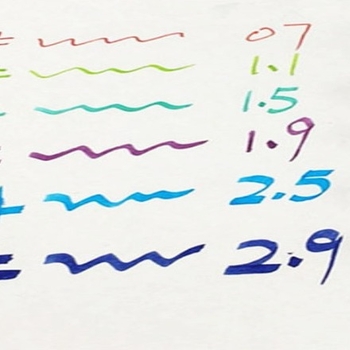 07
1.1
1.5
1.9
2.5
2.9